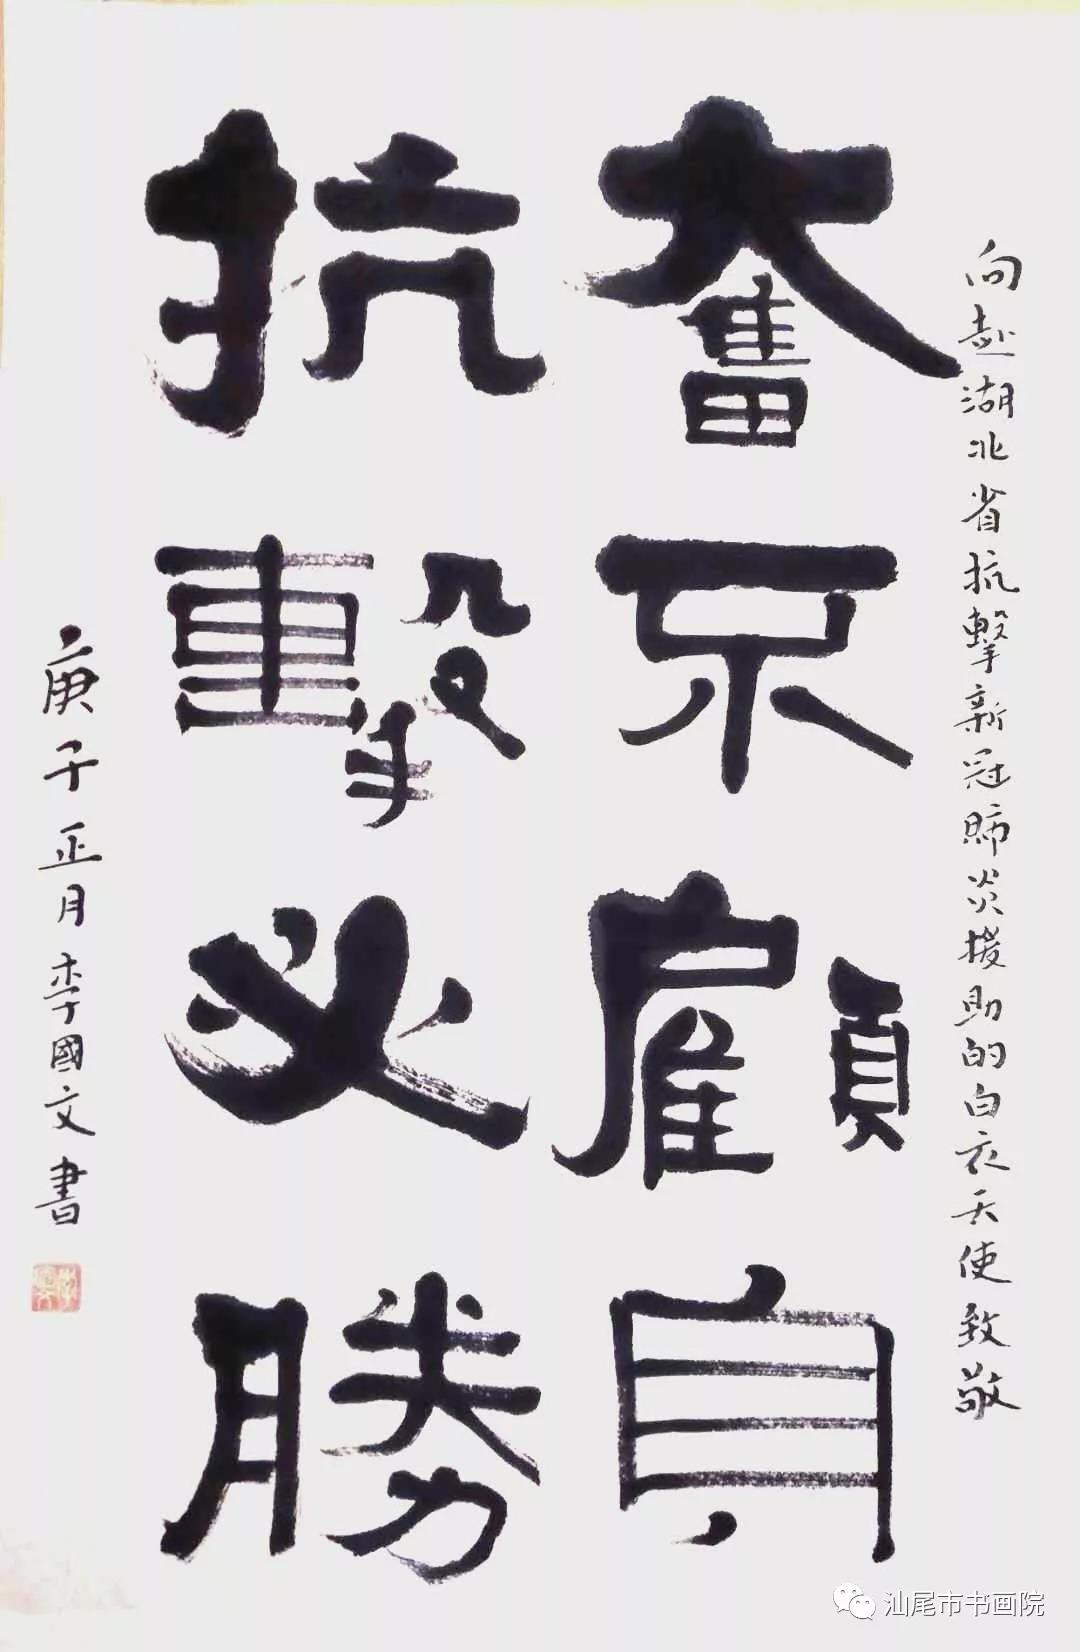 向赴湖北省抗擊新冠肺炎援助的白衣天使致敬
奮不顧身
抗擊必勝
庚子正月李國文書
汕尾市书画院